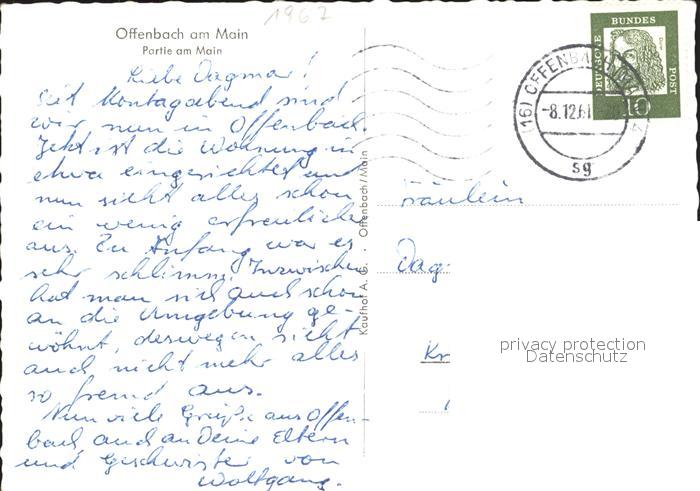 1962
Offenbach am Main
Partie am Main
Liebe Dagmar!
Seit Montagabend sind
wir nun in Offenbach.
Jetzt ist die Wohnung in
etwa eingerichtet und
nun sieht alles schon
ein wenig erfreulicher
aus. Zu Anfang war es
sehr schlimm. Inzwischen
hat man sich auch schon
an die Umgebung ge-
wöhnt, deswegen sieht
auch nicht mehr alles
so fremd aus.
Nun viele Grüße aus Offen-
bach auch an Deine Eltern
und Geschwister von
Wolfgang.
Kaufhof A. G. · Offenbach/Main
DEUTSCHE
BUNDES
POST
Dürer
10
(16) OFFENBACH
-8.12.61
sg
Fräulein
Dag
Kr
privacy protection
Datenschutz